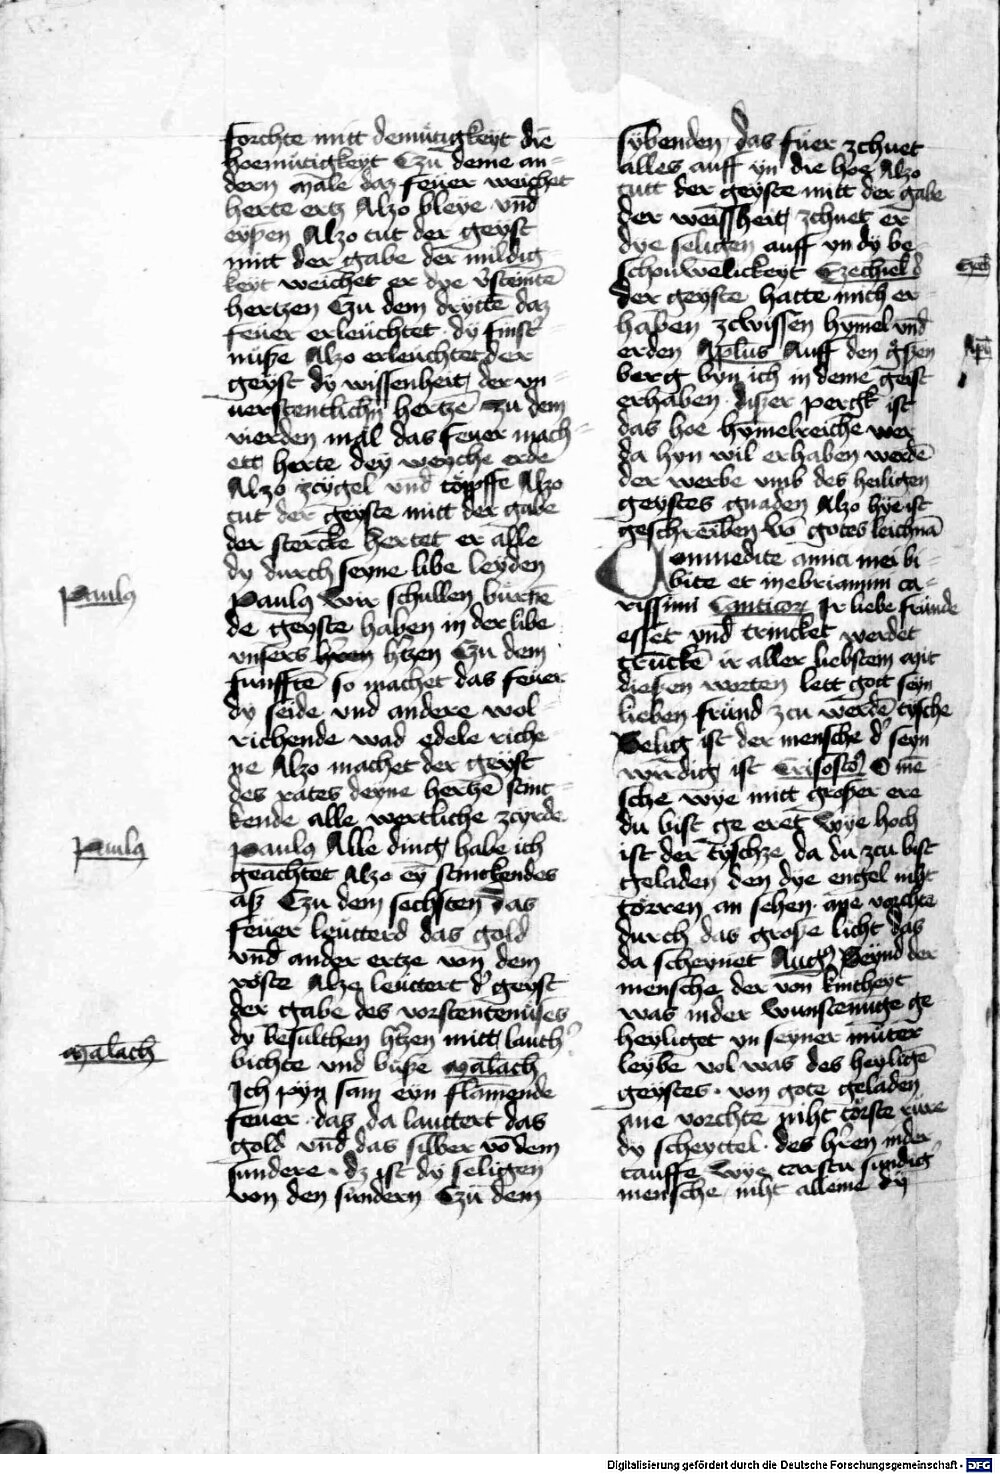 forchte mitt demütigkeyt die
hoemütigkeyt Czü deme an-
dern male daz feüer weichet
herte ertz Alzo bleye vnd
eyßen Alzo tut der geyst
mitt der gabe der mildig
keyt weichet er dye v̉steinte
hertzen Czu dem drytte daz
feüer erleüchtet dy finst̉
nüße Alzo erleuchtet der
geyst dy wissenheit der vn-
uerstentlichn̄ hertze zu dem
vierden mal das feuer mach-
ett herte dey weyche erde
Alzo zcygel vnd töpffe Alzo
tut der geyste mitt der gabe
der stercke hertet er alle
dy durch seyne libe leyden
Paulꝯ Wir schullen bürne
de geyste haben in der libe
vnsers h̉tzen Czu dem
funffte so machet das feüer
dy seide vnd andere wol-
richende wad edele riche-
ne Alzo machet der geyst
des rates deyne hertze stint-
kende alle wertliche zcyrde
Paulꝯ Alle dinch habe ich
geachtet Alzo ey stinckendes
aß Czu dem sechsten das
feüer leutterd das gold
vnd ander ertze von dem
roste Alzo leuttert d̉ geyst
der gabe des vorstentenußes
dy besulthen h̉tzen mitt lauth̉
bichte vnd buße Malach
Ich pyn sam eyn flamende
feuer das da lauttert das
gold vnd das silber vō dem
sundere dz ist dy seligen
von den sündern Czü dem
Paulꝯ
Paulꝯ
Malach
sybenden das füer zchuet
alles auff yn die hoe Alzo
tutt der geyste mitt der gabe
der weissheit zchuet er
dye seligen auff yn dy be-
schouwelickeyt Ezechiel d̉
der geyste hatte mich er-
haben zcwissen hymel vnd
erden Aplus Auff den g̉ßen
berg byn ich in deme geist
erhaben dißer pergk ist
das hoe hymelreiche wer
da hyn wil erhaben werde
der werbe vmb des heiligen
geystes gnaden Alzo hye ist
geschreiben vō gotes leichnā
Comedite amici mei bi-
bite et inebriamini ca-
rissimi Canticoꝝ Ir liebe fründe
esset vnd trincket werdet
trucke ir aller liebstem mit
dießen worten lett gott seyn
lieben fründ zcu werde tysche
Selig ist der mensche d̉ seyn
wirdig ist Crisosto᷒ O mē
sche wye mitt großer ere
du bist ge eret Wye hoch
ist der tyschze da du zcu bist
geladen den dye engel niht
törren an sehen ane vorchte
durch das große licht das
da scheynet Augꝯ Seynd der
mensche der von kintheyt
was in der wunstenüge ge-
heyliget yn seyner müter
leybe vol was des heylige
geystes von gote geladen
ane vorchte niht törste rüre
dy scheyttel des h̉ren in der
tauffe Wye tarstu sundig̉
mensche niht alleine dy
Ezech
Apl᷒
Digitalisierung gefördert durch die Deutsche Forschungsgemeinschaft - DFG